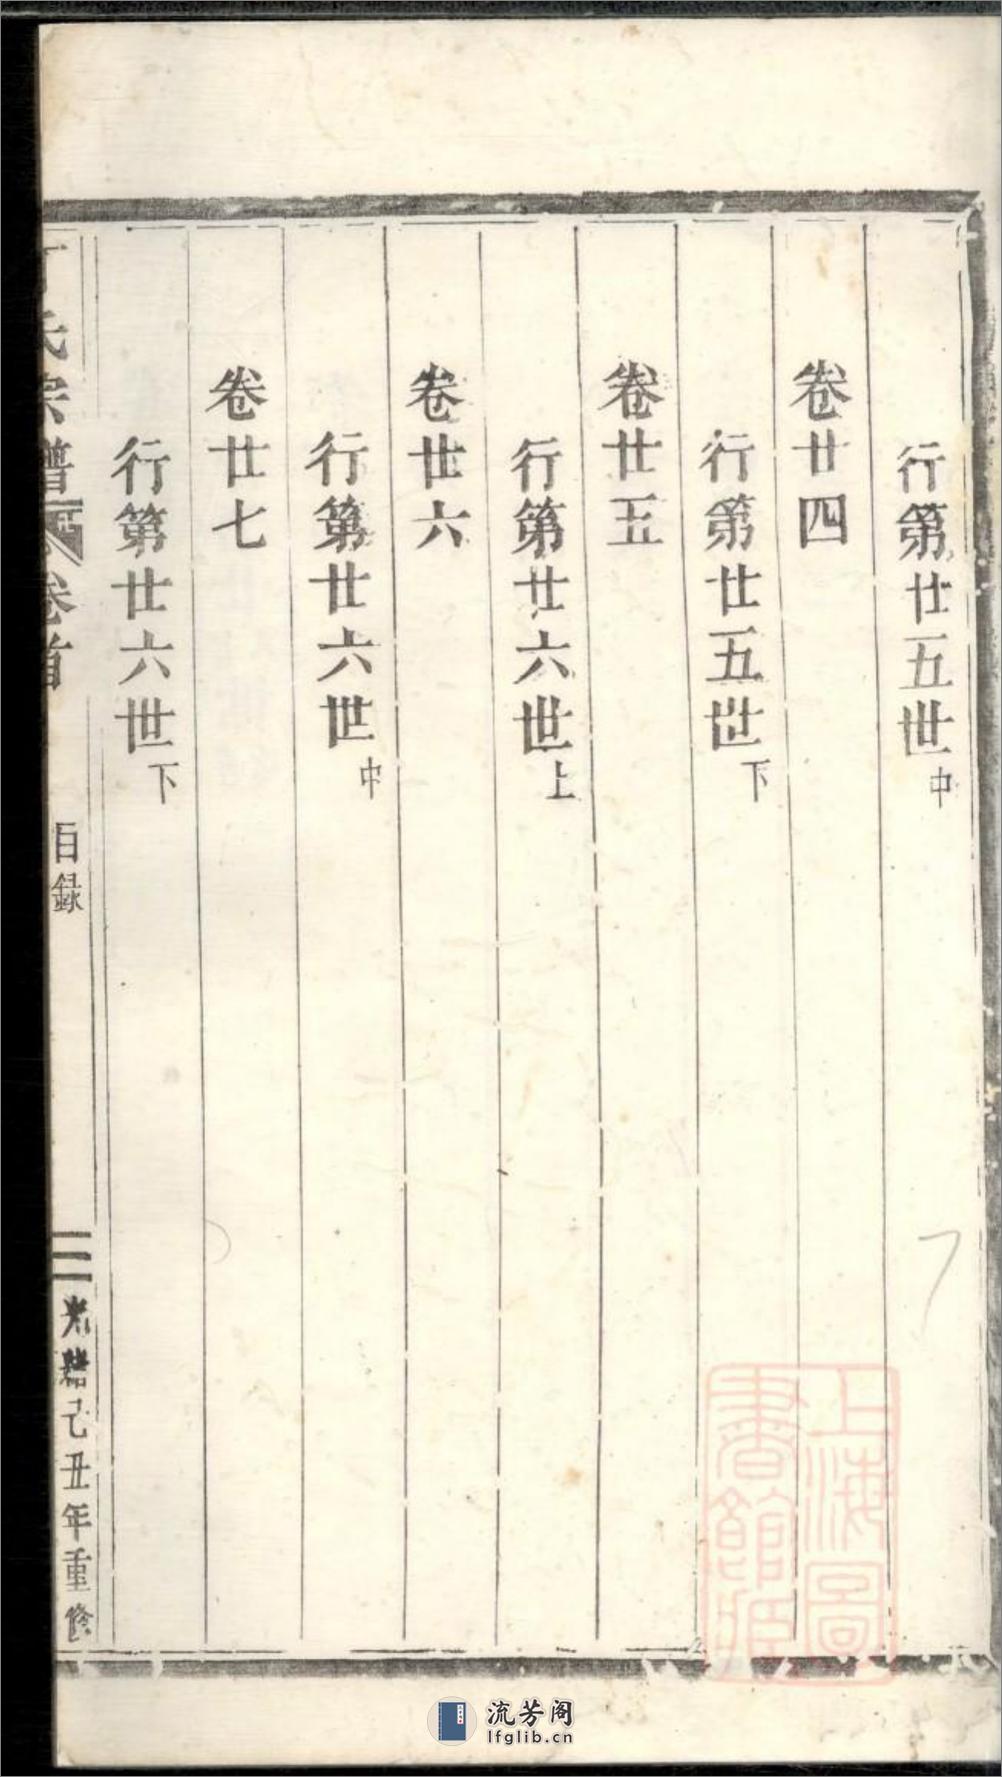 行第廿五世中
卷廿四
行第廿五世下
卷廿五
行第廿六世上
卷廿六
行第廿六世中
卷廿七
行第廿六世下
丁氏宗譜 卷首 目録 三 光緒己丑年重修
上海圖
書館藏
流芳阁
lfglib.cn